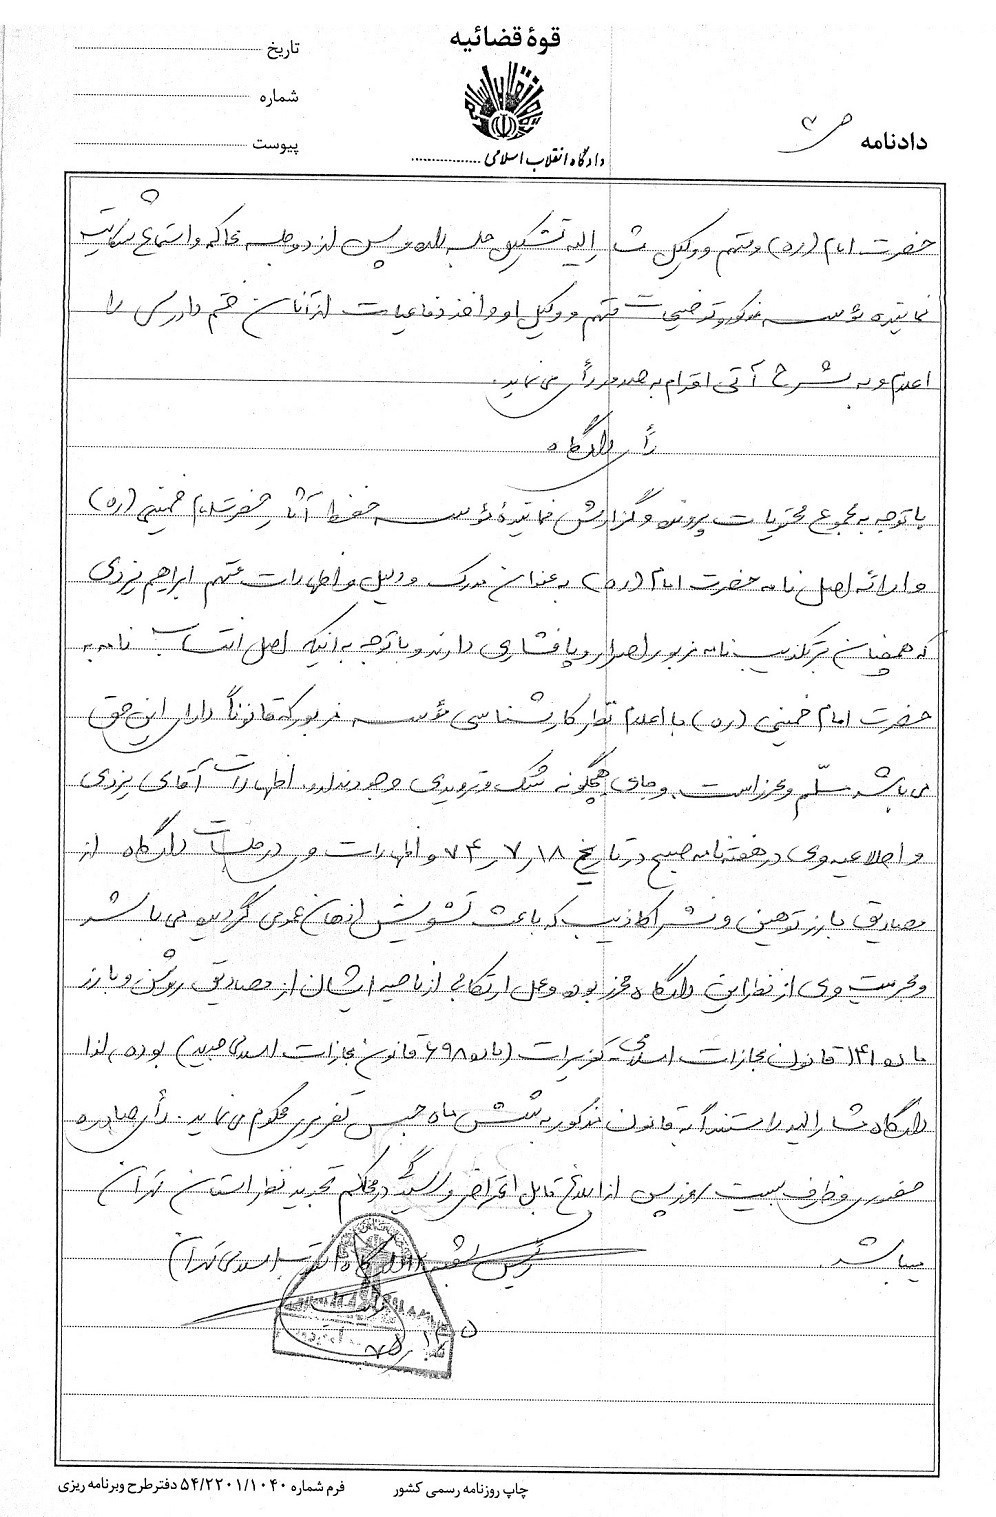 قوهٔ قضائیه
تاریخ
شماره
پیوست
دادگاه انقلاب اسلامی
دادنامه
حضرت امام (ره) و متهم و وکیل مشارالیه تشکیل جلسه داده و پس از دو جلسه محاکمه و استماع شکایت
نماینده مؤسسه مذکور و توضیحات متهم و وکیل او و اخذ دفاعیات از آنان ختم دادرسی را
اعلام و به شرح آتی اقدام به صدور رأی می نماید.
رأی دادگاه
با توجه به مجموع محتویات پرونده و گزارش نمایندهٔ مؤسسه حفظ آثار حضرت امام خمینی (ره)
و ارائه اصل نامه حضرت امام (ره) به عنوان مدرک و دلیل و اظهارات متهم ابراهیم یزدی
که همچنان بر تکذیب نامه مزبور اصرار و پافشاری دارند و با توجه به اینکه اصل انتساب نامه به
حضرت امام خمینی (ره) با اعلام نظر کارشناسی مؤسسه مزبور که قانوناً دارای این حق
می باشد مسلّم و محرز است. و جای هیچگونه شک و تردیدی وجود ندارد. اظهارات آقای یزدی
و اطلاعیه وی در هفته نامه صبح در تاریخ ۷۴/۷/۱۸ و اظهارات وی در جلسات دادگاه از
مصادیق بارز توهین و نشر اکاذیب که باعث تشویش اذهان عمومی گردیده می باشد
و مجرمیت وی از نظر این دادگاه محرز بوده و عمل ارتکابی از ناحیه ایشان از مصادیق روشن و بارز
ماده ۱۴۱ قانون مجازات اسلامی تعزیرات (ماده ۶۹۸ قانون مجازات اسلامی جدید) بوده، لذا
دادگاه مشارالیه را مستنداً به قانون مذکور به شش ماه حبس تعزیری محکوم می نماید. رأی صادره
حضوری و ظرف بیست روز پس از ابلاغ قابل اعتراض و رسیدگی در محاکم تجدید نظر استان تهران
میباشد.
رئیس شعبه اول دادگاه انقلاب اسلامی تهران
فرم شماره ۵۴/۲۲۰۱/۱۰۴۰ دفتر طرح وبرنامه ریزی
چاپ روزنامه رسمی کشور